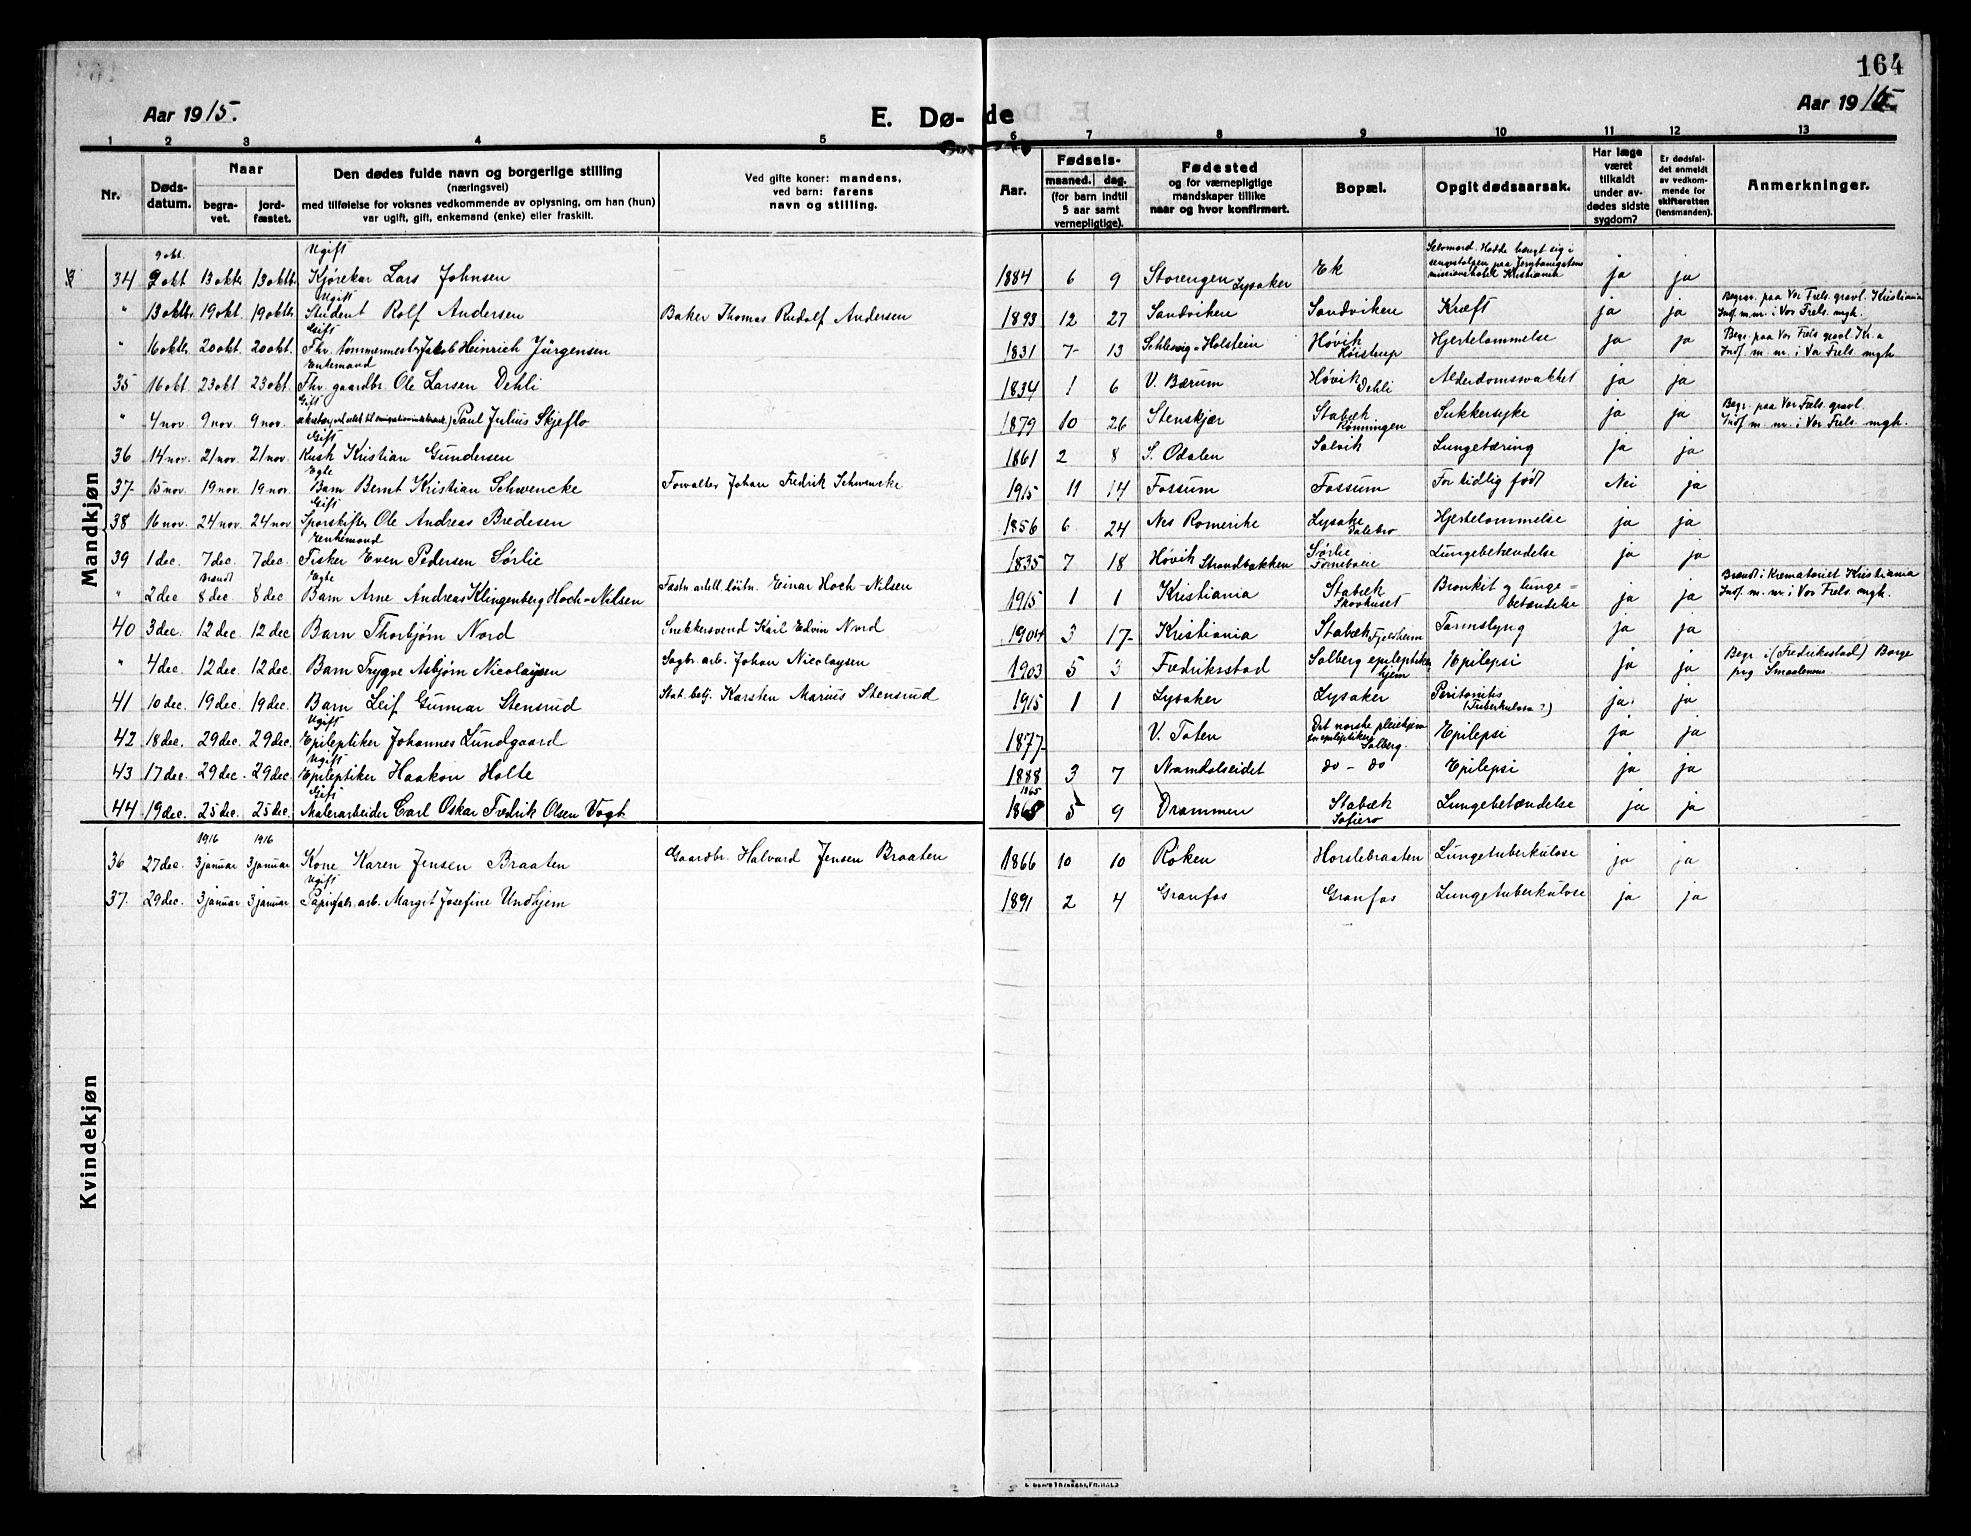 164
Aar 1915.
E. Døde
Aar 1915
1 2 3 4 5 6 7 8 9 10 11 12 13
Nr.
Døds-
datum.
Naar
begra-
vet.
jord-
fæstet.
Den dødes fulde navn og borgerlige stilling
(næringsvei)
med tilføielse for voksnes vedkommende av oplysning, om han (hun)
var ugift, gift, enkemand (enke) eller fraskilt.
Ved gifte koner: mandens,
ved barn: farens
navn og stilling.
Aar.
Fødsels-
maaned. dag.
(for barn indtil
5 aar samt
vernepligtige).
Fødested
og for værnepligtige
mandskaper tillike
naar og hvor konfirmert.
Bopæl.
Opgit dødsaarsak.
Har læge
været
tilkaldt
under av-
dødes sidste
sygdom?
Er dødsfal-
det anmeldt
av vedkom-
mende for
skifteretten
(lensmanden).
Anmerkninger.
Mandkjøn
9 okt. Ugift
34 9 okt 13 oktb 13 oktb. Kjørekar Lars Johnsen 1884 6 9 Storengen Lysaker Ek Selvmord. Hadde hængt sig i
sengestolpen paa Jernbanegatens
missionshotel Kristiania ja ja
Ugift
" 13 oktb. 19 okt. 19 oktb. Student Rolf Andersen Baker Thomas Rudolf Andersen 1893 12 27 Sandviken Sandviken Kræft ja ja Begr. paa Vor Frels. gravl. Kristiania
Indf. m. nr. i Vor Frels. mgh.
Gift
" 16 oktb. 20 okt. 20 okt. Fhv. tømmermester Jakob Heinrich Jürgensen 1831 7 13 Schlesvig-Holstein Høvik
Høistrup Hjertelammelse ja ja Begr. paa Vor Frels gravl. Kr.a
Indf. m. nr. i Vor Frels. mgh
Enkemand
35 16 okt 23 okt 23 okt. Fhv. gaardbr. Ole Larsen Dehli 1834 1 6 V. Bærum Høvik Dehli Alderdomssvakhet ja ja
Gift
" 4 nov. 9 nov. 9 nov. Paul Julius Skjeflo 1879 10 26 Stenskjær Stabæk
Rønningen Sukkersyke ja ja Begr. paa Vor Frels. gravl.
Indf. m. nr. i Vor Frels. mgh.
Gift
36 14 nov. 21 nov. 21 nov. Kusk Kristian Gundersen 1861 2 8 S. Odalen Solvik Lungetæring ja ja
Egte
37 15 nov. 19 nov. 19 nov. Barn Bernt Kristian Schwencke Forvalter Johan Fredrik Schwencke 1915 11 14 Fossum Fossum For tidlig født Nei ja
Gift
38 16 nov. 24 nov. 24 nov. Sporskifter Ole Andreas Bredesen 1856 6 24 Nes Romerike Lysaker
Hjertelammelse ja ja
Enkemand
39 1 dec. 7 dec. 7 dec. Fisker Even Pedersen Sørlie 1835 7 18 Høvik Strandbakken Sørlie
Fornebøie Lungebetændelse ja ja
Brændt Egte
" 2 dec 8 dec. 8 dec. Barn Arne Andreas Klingenberg Hoch-Nilsen Fastn. artell. løitn. Einar Hoch-Nilsen 1915 1 1 Kristiania Stabæk
Skovhuset Bronkit og lunge-
betændelse ja ja Brændt i krematoriet Kristiania
Indf. m. nr. i Vor Frels. mgh.
40 3 dec. 12 dec. 12 dec Barn Thorbjørn Nord Snekkersvend Karl Edvin Nord 1904 3 17 Kristiania Stabæk Fjeldheim Tarmslyng ja ja
" 4 dec. 12 dec. 12 dec. Barn Trygve Asbjørn Nicolaysen Sagbr. arb. Johan Nicolaysen 1903 5 3 Fredriksstad Solberg epileptiker
hjem Epilepsi ja ja Begr. i (Fredriksstad) Borge
prg Smaalenene
41 10 dec. 19 dec. 19 dec. Barn Leif Gunnar Stensrud Stat. betj. Karsten Marius Stensrud 1915 1 1 Lysaker Lysaker Peritonitis
(Tuberkulose?) ja ja
Ugift
42 18 dec. 29 dec. 29 dec. Epileptiker Johannes Lundgaard 1877 V. Toten Det norske pleiehjem
for epileptiker
Solberg. Epilepsi ja ja
Ugift
43 17 dec. 29 dec. 29 dec. Epileptiker Haakon Holte 1888 3 7 Namdalseidet do - do Epilepsi ja ja
Gift 1865
44 19 dec. 25 dec. 25 dec. Malerarbeider Carl Oskar Fredrik Olsen Vogt 5 9 Drammen Stabæk
Solfjero Lungebetændelse ja ja
Kvindekjøn
1916 1916
36 27 dec. 3 januar 3 januar Kone Karen Jensen Braaten Gaardbr. Halvard Jensen Braaten 1866 10 10 Røken Horslebraaten Lungetuberkulose ja ja
Ugift
37. 29 dec. 3 januar 3 januar Papirfabr. arb. Margit Josefine Undhjem 1891 2 4 Granfos Granfos Lungetuberkulose ja ja